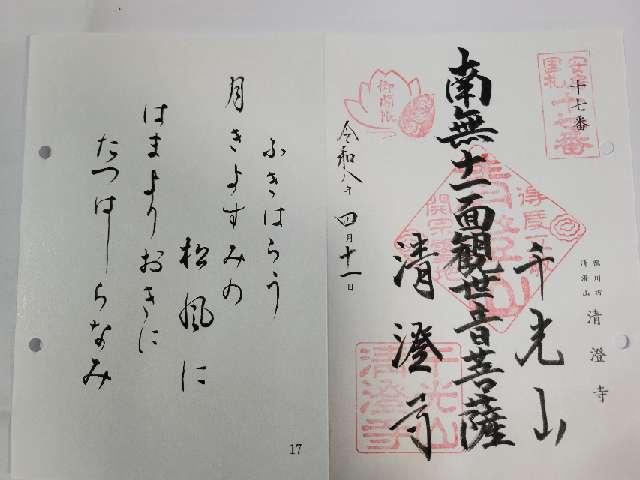 安房
国札
十七番
十七番
鴨川市
清澄山
清澄寺
千光山
南無十一面観世音菩薩
清澄寺
千光山
清澄寺
御開帳
令和八年
四月十一日
ふきはらう
月きよすみの
松風に
はまよりおきに
たつはしらなみ
17